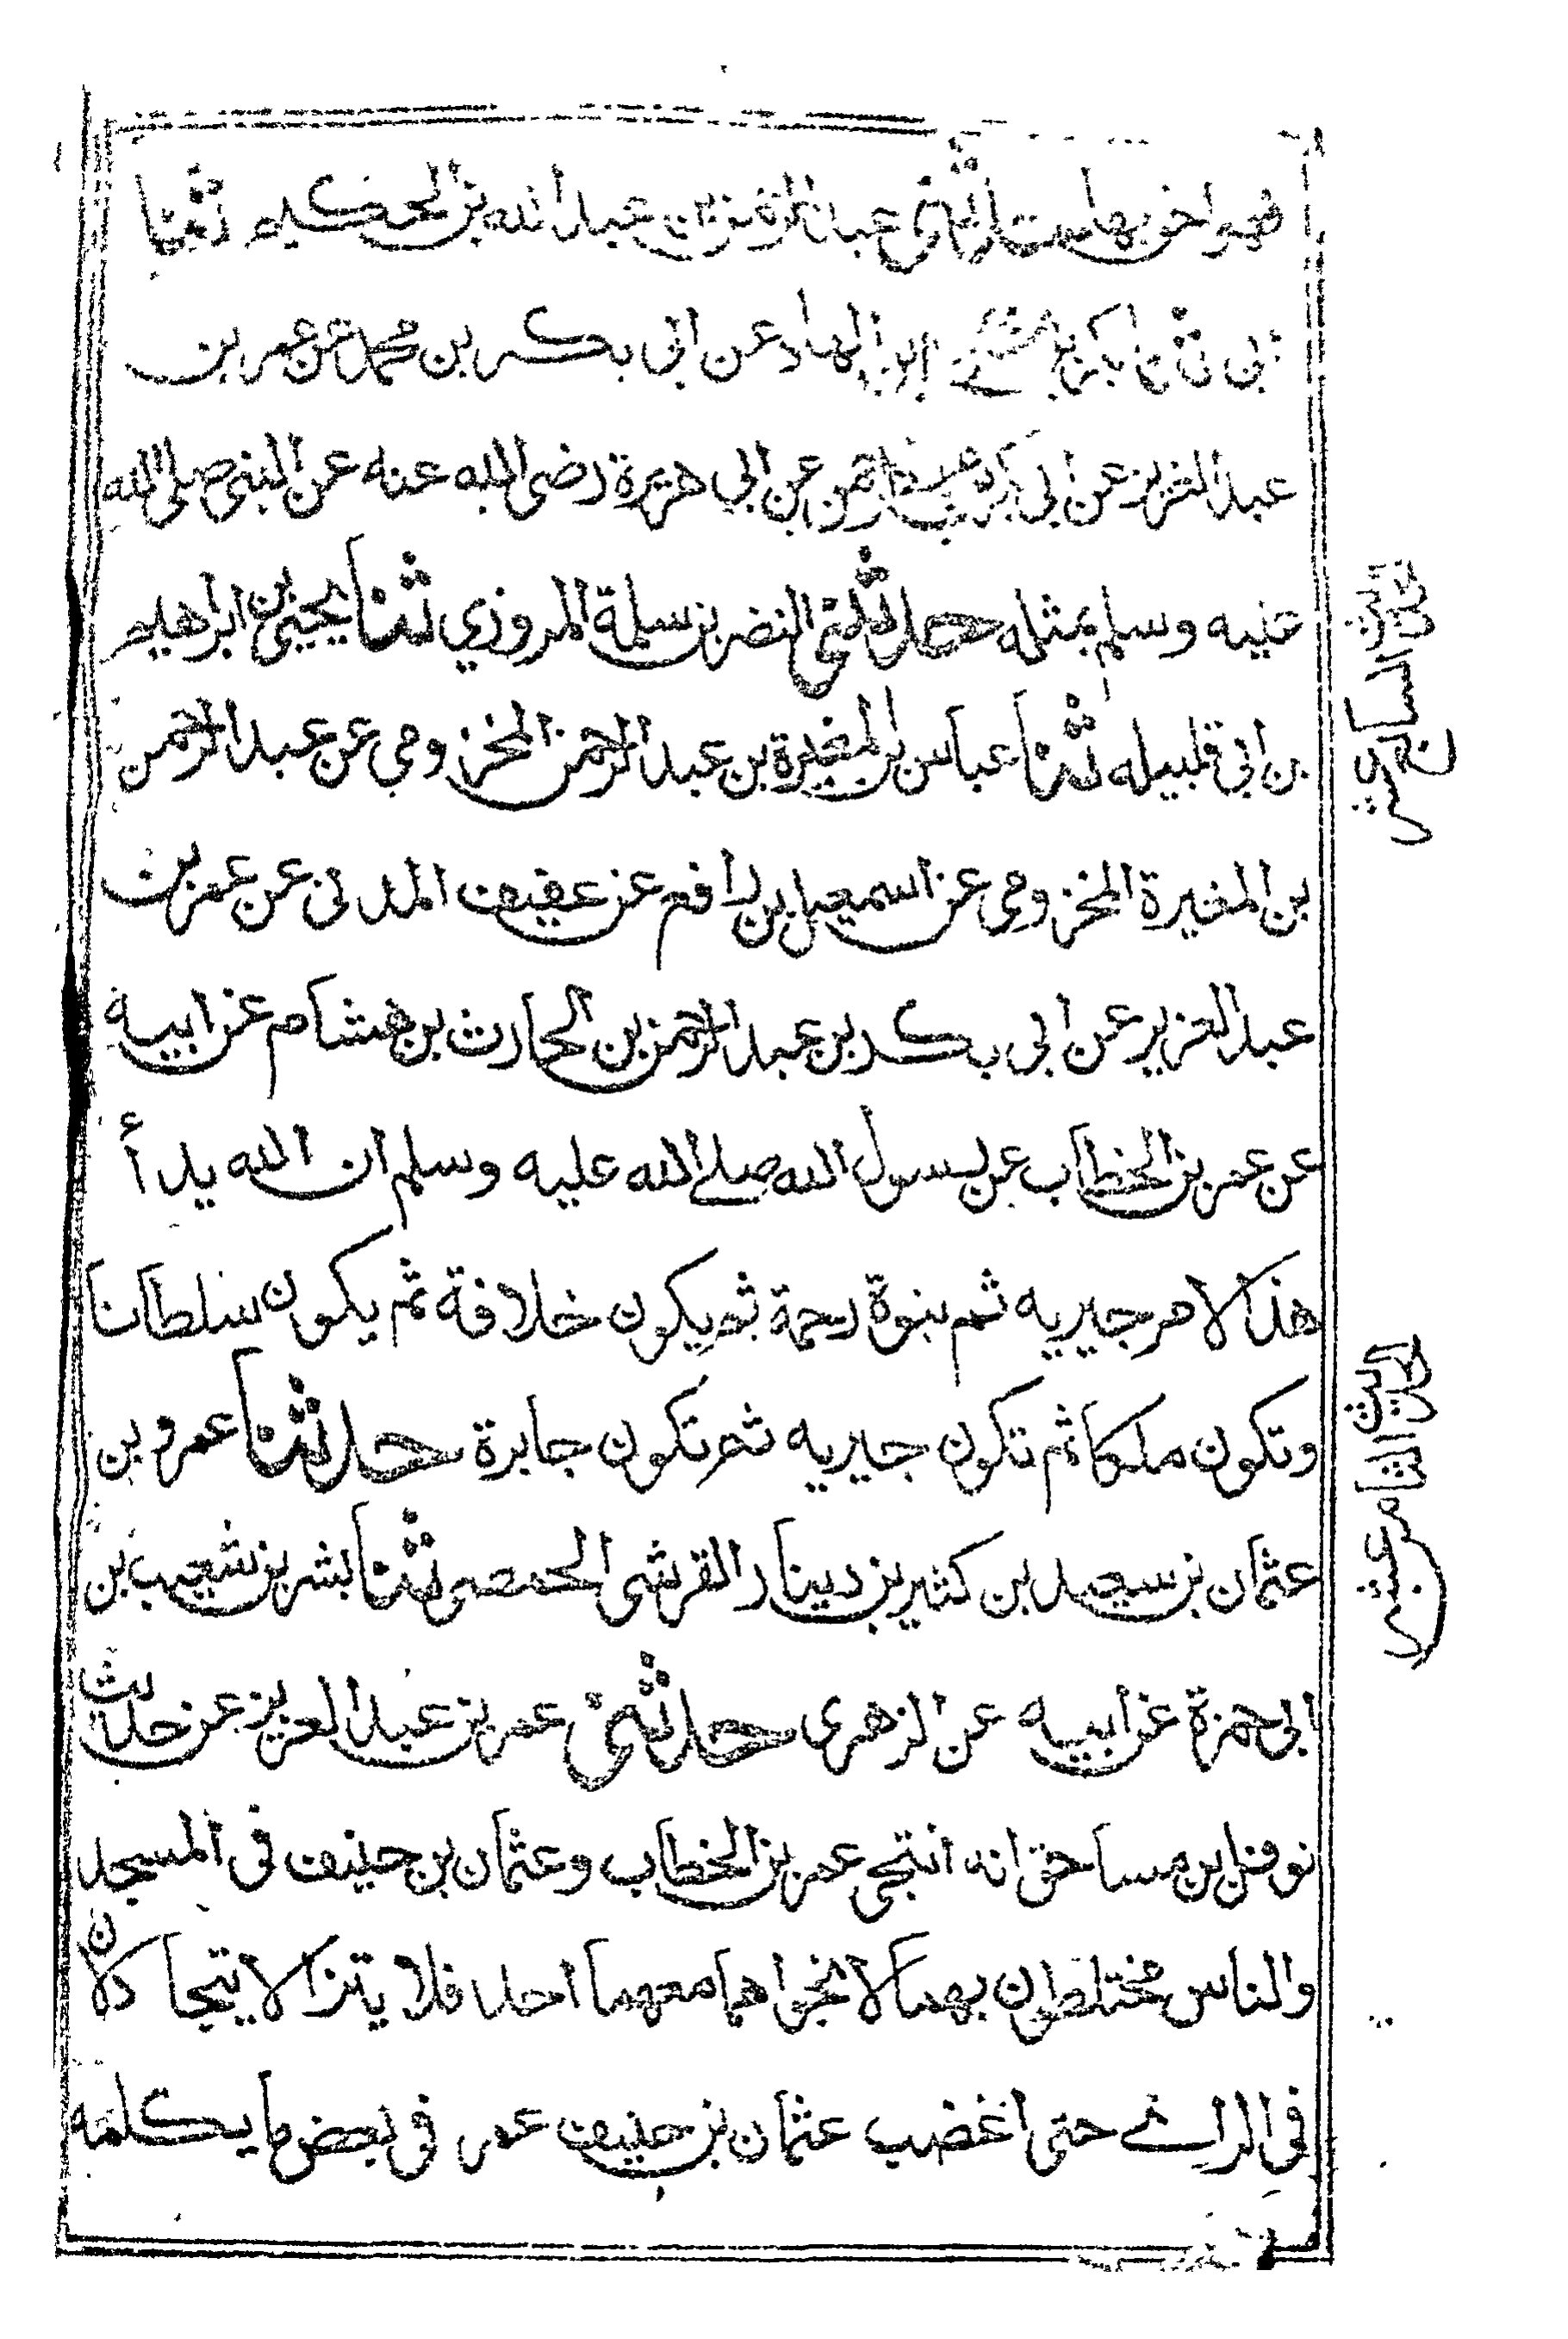 فهو احق بها حدثنى عبد الرحمن بن عبد الله بن الحكيم ثنا
ابن الهاد عن ابى بكر بن محمد عن عمر بن
عبد العزيز عن ابى بكر بن عبد الرحمن عن ابى هريرة رضى الله عنه عن النبى صلى الله
عليه وسلم بمثله حدثنى النضر بن سلمة المروزي ثنا يحيى بن ابراهيم
بن ابى قبيله ثنا عباس بن المغيرة بن عبد الرحمن المخزومى عن عبد الرحمن
بن المغيرة المخزومى عن اسمعيل بن رافع عن عفيف المدنى عن عمر بن
عبد العزيز عن ابى بكر بن عبد الرحمن بن الحارث بن هشام عن ابيه
عن عمر بن الخطاب عن رسول الله صلى الله عليه وسلم ان الله بدأ
هذا الامر جبريه ثم بنبوة رحمة ثم يكون خلافة ثم يكون سلطانا
وتكون ملكا ثم تكون جبريه ثم تكون جابرة حدثنا عمرو بن
عثمان بن سعيد بن كثير بن دينار القرشى الحمصى ثنا بشر بن شعيب بن
ابى حمزة عن ابيه عن الزهرى حدثنى عمر بن عبد العزيز عن حديث
نوفل بن مساحق انه انتجى عمر بن الخطاب وعثمان بن حنيف فى المسجد
والناس مختلطون بهما لا نجواهما معهما احد فلا يتزالا يتجادلان
فى الراى حتى اغضب عثمان بن حنيف عمر فى بعض ما يكلمه